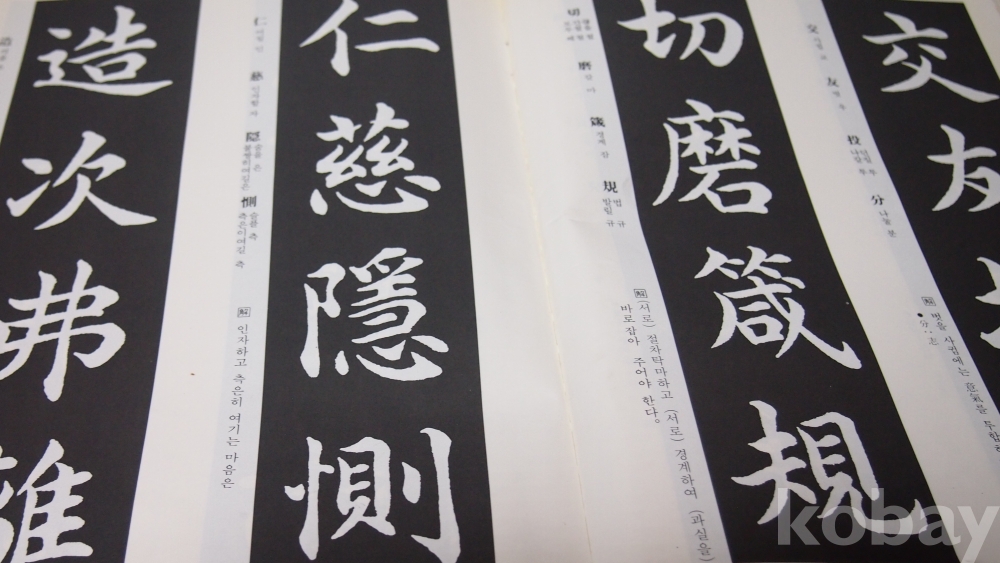 交友
交 사귈 교
友 벗 우
投 던질 투
分 나눌 분
切磨箴規
切
磨 갈 마
箴 경계 잠
規 법 규
발릴 규
解 (서로) 절차탁마하고 (서로) 경계하여 (과실을)
바로잡아 주어야 한다。
仁慈隱惻
仁 어질 인
慈
隱 슬플 은
惻 슬플 측
측은이여길 측
解 인자하고 측은히 여기는 마음은
造次弗離
造
kobay